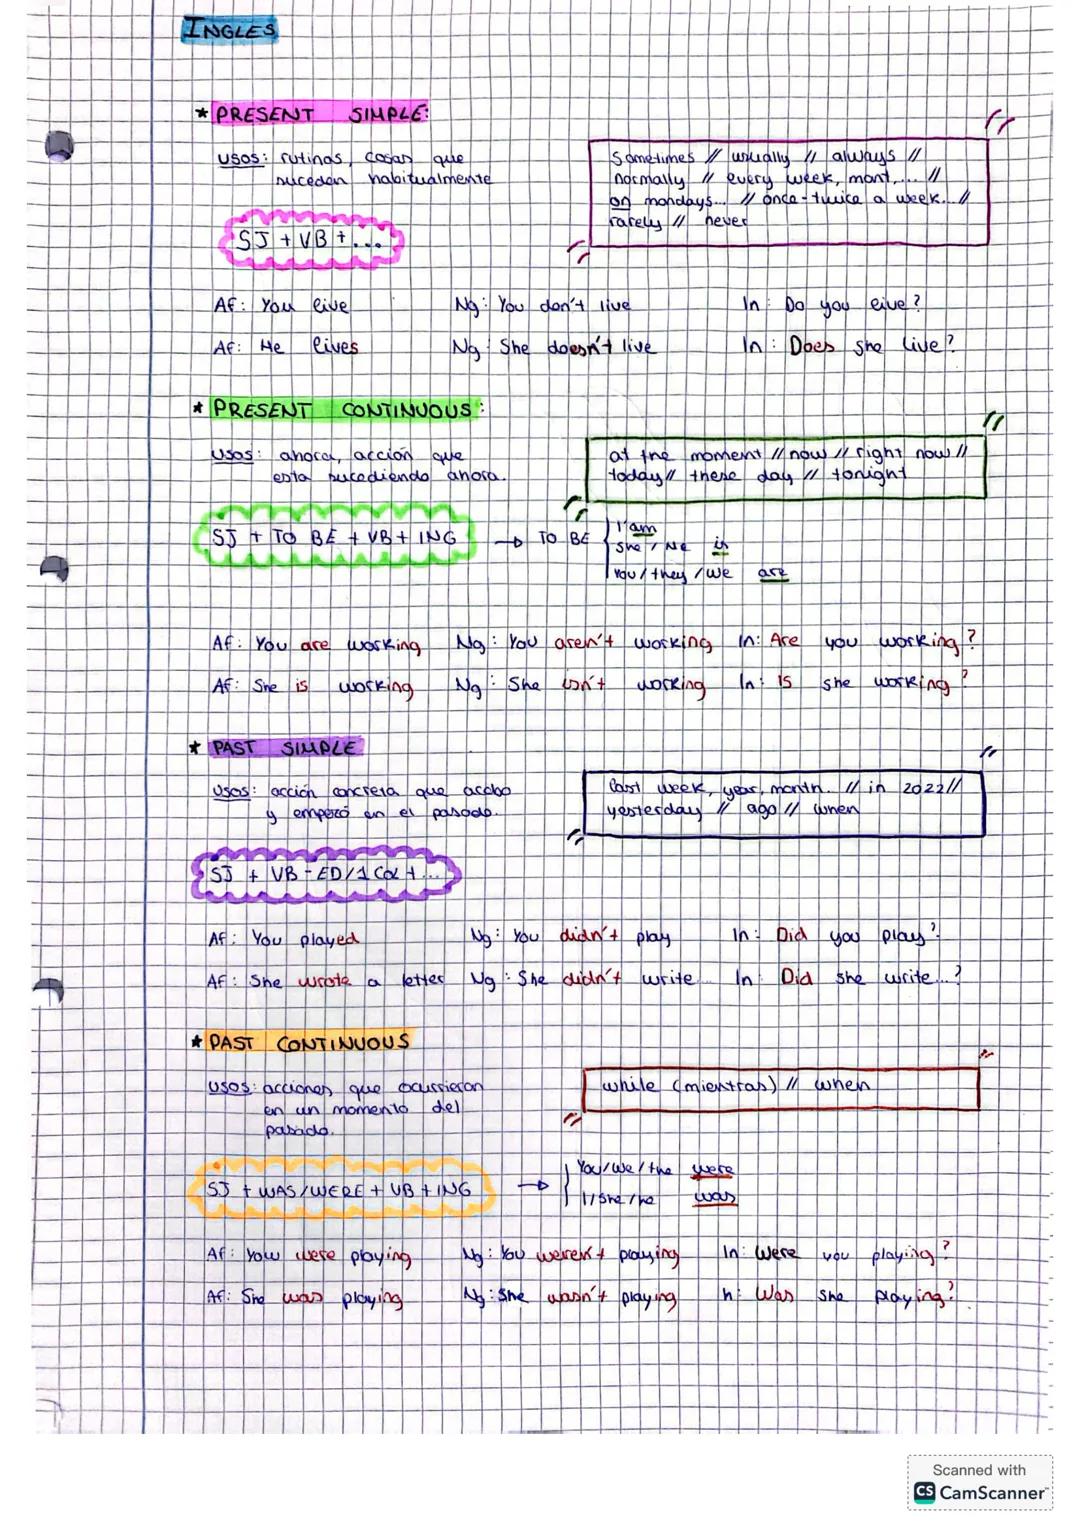 INGLES
* PRESENT SIMPLE:
usos: rutinas, cosas que
suceden habitualmente
Sometimes // usually // always //
normally // every week, mont,... //
on mondays... // once-twice a week... //
rarely // never
SJ + VB + ...
Af: You live
Ng: You don't live
In: Do you live?
Af: He lives
Ng: She doesn't live
In: Does she live?
* PRESENT CONTINUOUS:
usos: ahora, acción que
esta sucediendo ahora.
at the moment // now // right now //
today // these day // tonight
SJ + TO BE + VB + ING → TO BE
I'am
She / He is
You / they / we are
Af: You are working
Ng: You aren't working
In: Are you working?
Af: She is working
Ng: She isn't working
In: is she working?
* PAST SIMPLE
usos: acción concreta que acabo
y empezó en el pasado.
last week, year, month. // in 2022 //
yesterday // ago // when
SJ + VB - ED/1 Col + ...
Af: You played
Ng: You didn't play
In: Did you play?
Af: She wrote a letter
Ng: She didn't write...
In: Did she write...?
* PAST CONTINUOUS
usos: acciones que ocurrieron
en un momento del
pasado.
while (mientras) // when
SJ + WAS/WERE + VB + ING →
You/we/the were
I/she/he was
Af: You were playing
Ng: You weren't playing
In: Were you playing?
Af: She was playing
Ng: She wasn't playing
In: Was she playing?
Scanned with
CS CamScanner